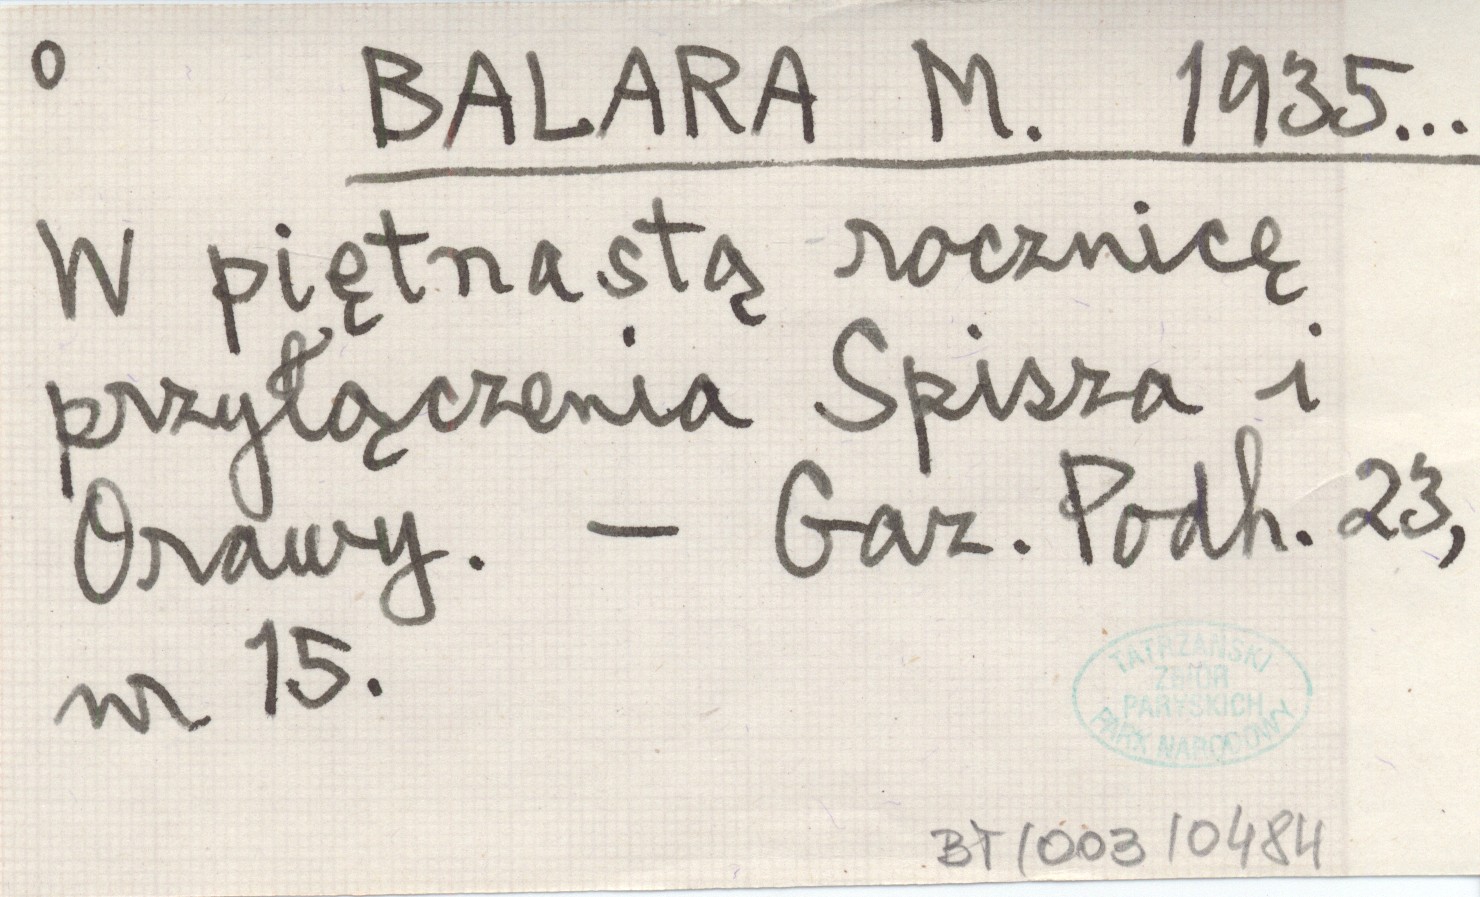 o BALARA M. 1935...
W piętnastą rocznicę
przyłączenia Spisza i
Orawy. – Gaz. Podh. 23,
nr 15.
TATRZAŃSKI
ZBIÓR
PARYSKICH
PARK NARODOWY
BT/003/0484